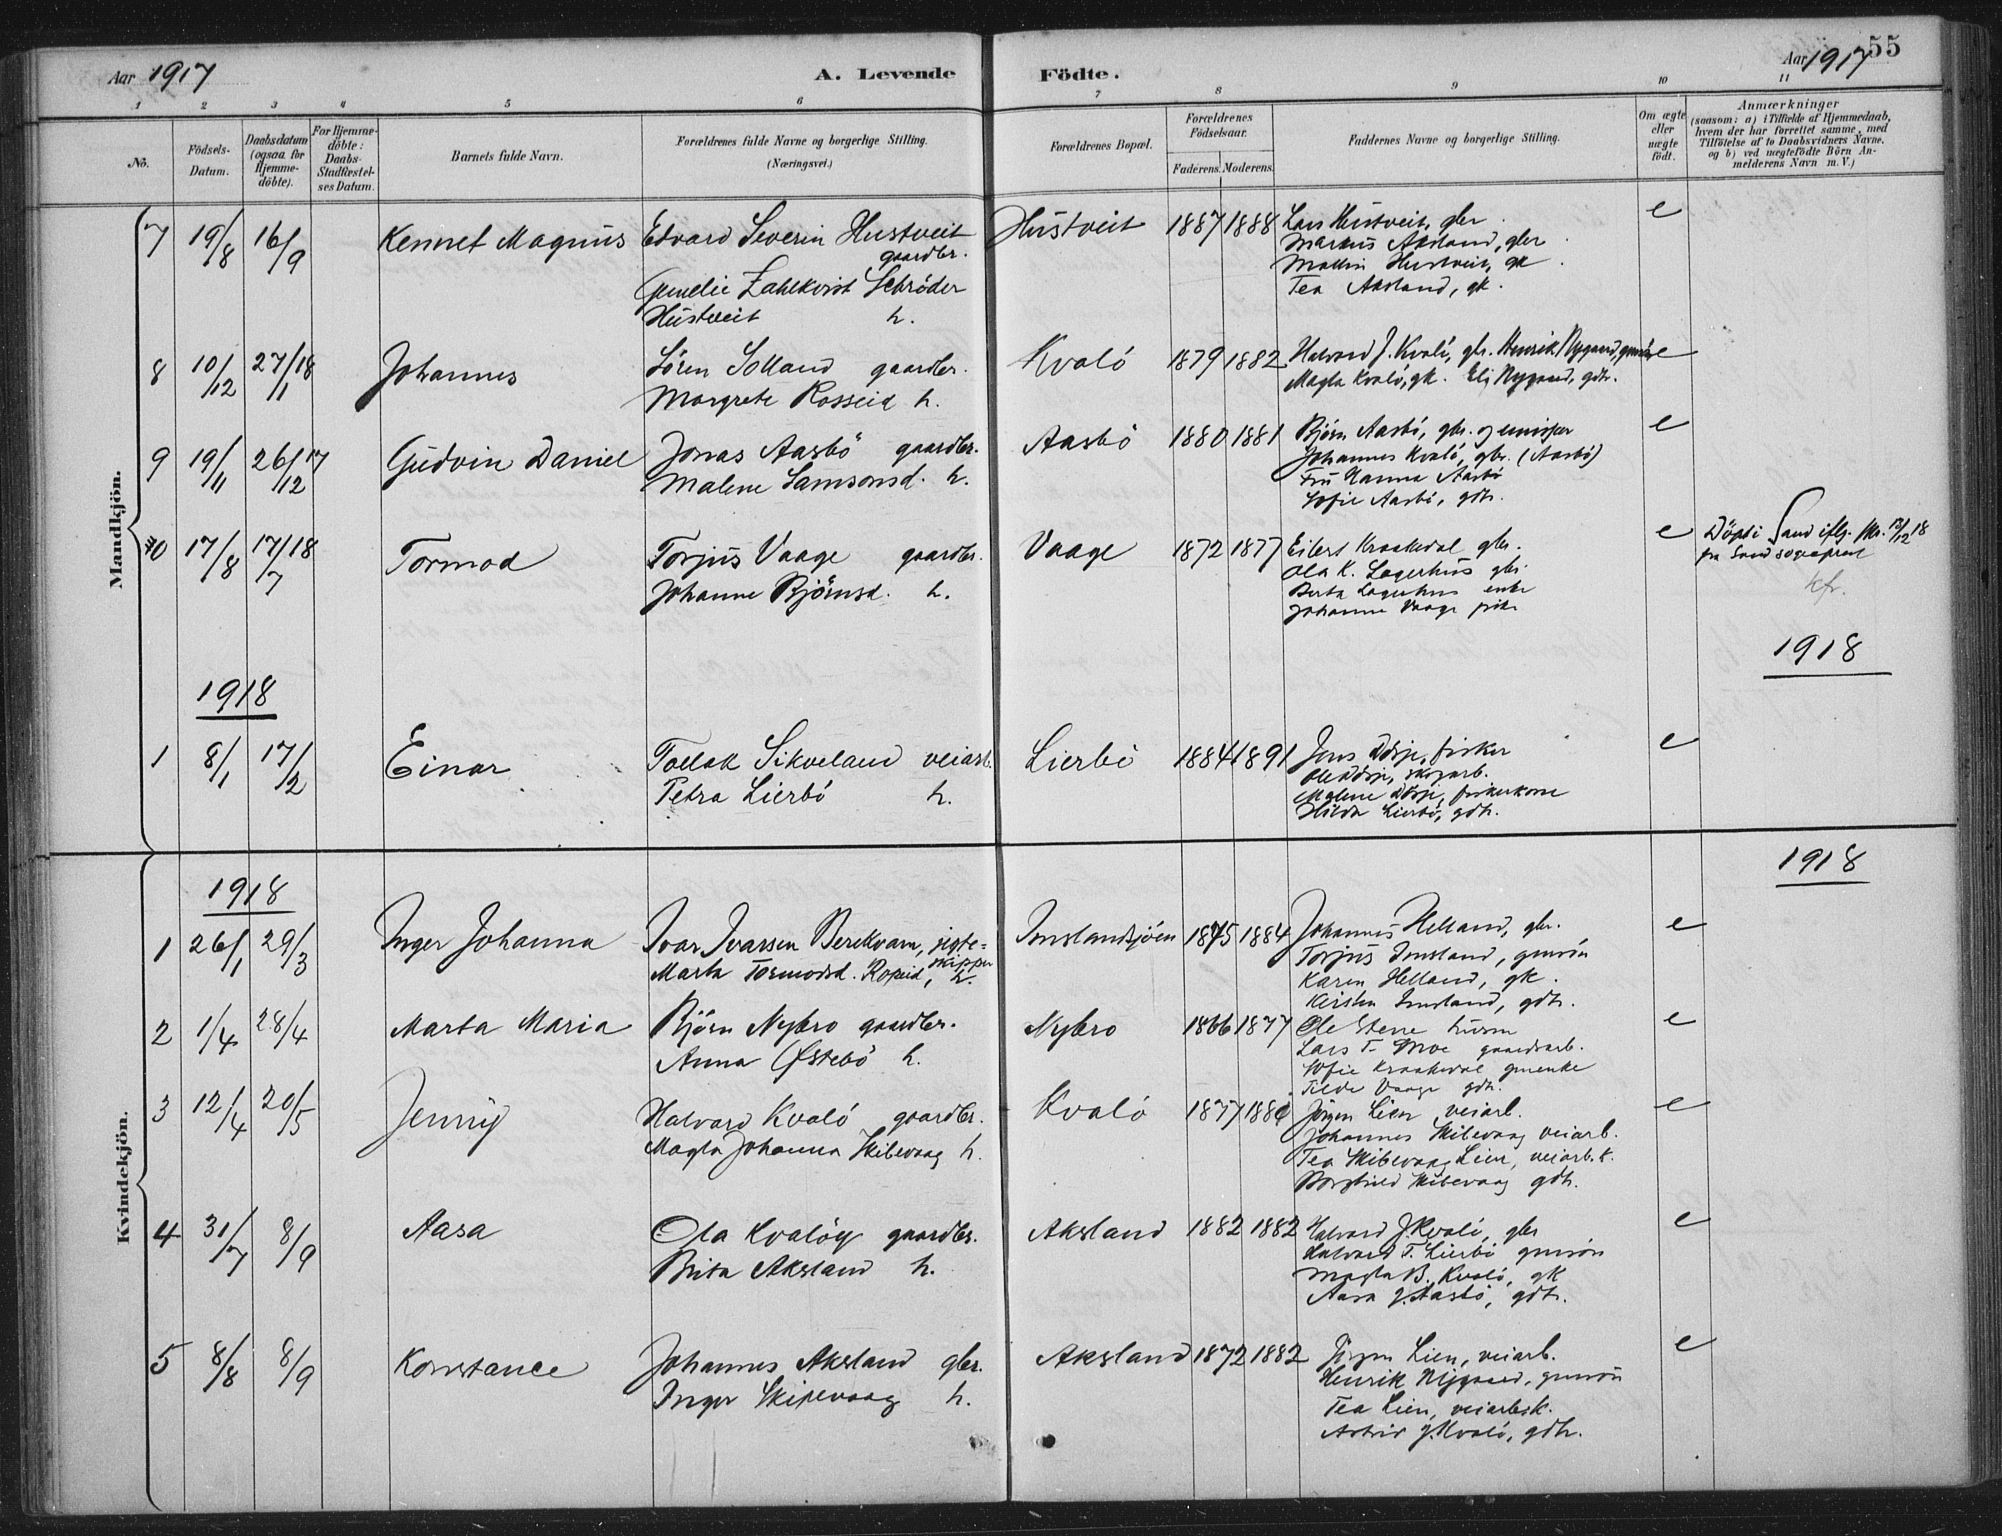 Aar 1917
A. Levende Födte.
Aar 1917
55
1 2 3 4 5 6 7 8 9 10 11
No.
Födsels-Datum.
Daabsdatum (ogsaa for Hjemme-döbte).
For Hjemme-döbte: Daabs-Stadfæstel-ses Datum.
Barnets fulde Navn.
Forældrenes fulde Navne og borgerlige Stilling.
(Næringsvei.)
Forældrenes Bopæl.
Forældrenes Födselsaar.
Faderens. Moderens.
Faddernes Navne og borgerlige Stilling.
Om ægte eller uægte födt.
Anmærkninger
(saasom: a) i Tilfælde af Hjemmedaab, hvem der har forrettet samme, med Tilföielse af to Daabsvidners Navne, og b) ved uægtefödte Börn An-melderens Navn m. V.)
Mandkjön.
7 19/8 16/9 Kennet Magnus Edvard Severin Hustveit Hustveit 1887 1888 Lars Hustveit, gbr. e
gaardbr. Markus Aksland, gbr
Zahlkvist Schrøder Mallin Hustveit, gk.
Hustveit h. Tea Aksland, gk.
8 10/12 27/1 18 Johannes Sören Solland gaardbr. Kvalö 1879 1882 Halvard J. Kvalö, gbr. Henrik Nygaard, gmsön e
Margrete Rosseid h. Magla Kvalö, gk. Eli Nygaard, gdtr.
9 19/11 26/12 17 Gudvin Daniel Jonas Aasbö gaardbr. Aasbö 1880 1881 Björn Aasbö, gbr. og e
Malene Samsonsd. h. Johannes Kvalö, gbr. (Aasbö)
Fru Hanna Aasbö
Sofie Aasbö, gdtr.
10 17/8 17/7 18 Tormod Torjus Vaage gaardbr. Vaage 1872 1877 Eilert Kraakedal gbr. e Döpt i Sand iflg. Skr. 13/12 18
Johanne Björnsd. h. Ola K. Lagerhus gbr. fra Sand sogneprest
Berta Lagerhus enke kfr.
Johanne Vaage pike
1918
1918
1 8/1 17/2 Einar Tollak Sikveland veiarb. Lierbö 1884 1891 Jens Dösje, fisker e
Petra Lierbö h. Ole Dösje, skogarb.
Malene Dösje, fiskerkone
Hilda Lierbö, gdtr.
Kvindekjön.
1918
1918
1 26/1 29/3 Inger Johanna Ivar Ivarsen Berekvam, jegte- Imslandsjöen 1875 1884 Johannes Helland, gbr. e
skipper Torjus Imsland, gmsön
Marta Tormodsd. Ropeid, h. Karen Helland, gk.
Kirsten Imsland, gdtr.
2 1/4 28/4 Marta Maria Björn Nybro gaardbr. Nybro 1866 1877 Ole Stene husm e
Anna Østebö h. Lars T. Moe gaardsarb.
Sofie Kraakedal gmenke
Tilde Vaage gdtr.
3 12/4 20/5 Jenny Halvard Kvalö gaardbr. Kvalö 1877 Jörgen Lien veiarb. e
Magla Johanna Skibevaag h. Johannes Skibevaag veiarb.
Tea Skibevaag Lien, veiarb. k.
Borghild Skibevaag gdtr.
4 31/7 8/9 Aasa Ola Kvalöy gaardbr. Aksland 1882 1882 Halvard J. Kvalö, gbr e
Brita Aksland h. Halvard T. Lierbö gmsön
Magla B. Kvalö, gk
Aasa J. Aasbö, gdtr.
5 8/8 8/9 Konstance Johannes Aksland gbr. Aksland 1872 1882 Jörgen Lien, veiarb. e
Inger Skipevaag h. Henrik Nygaard, gmsön
Tea Lien, veiarb.k.
Astrid J. Kvalö, gdtr.